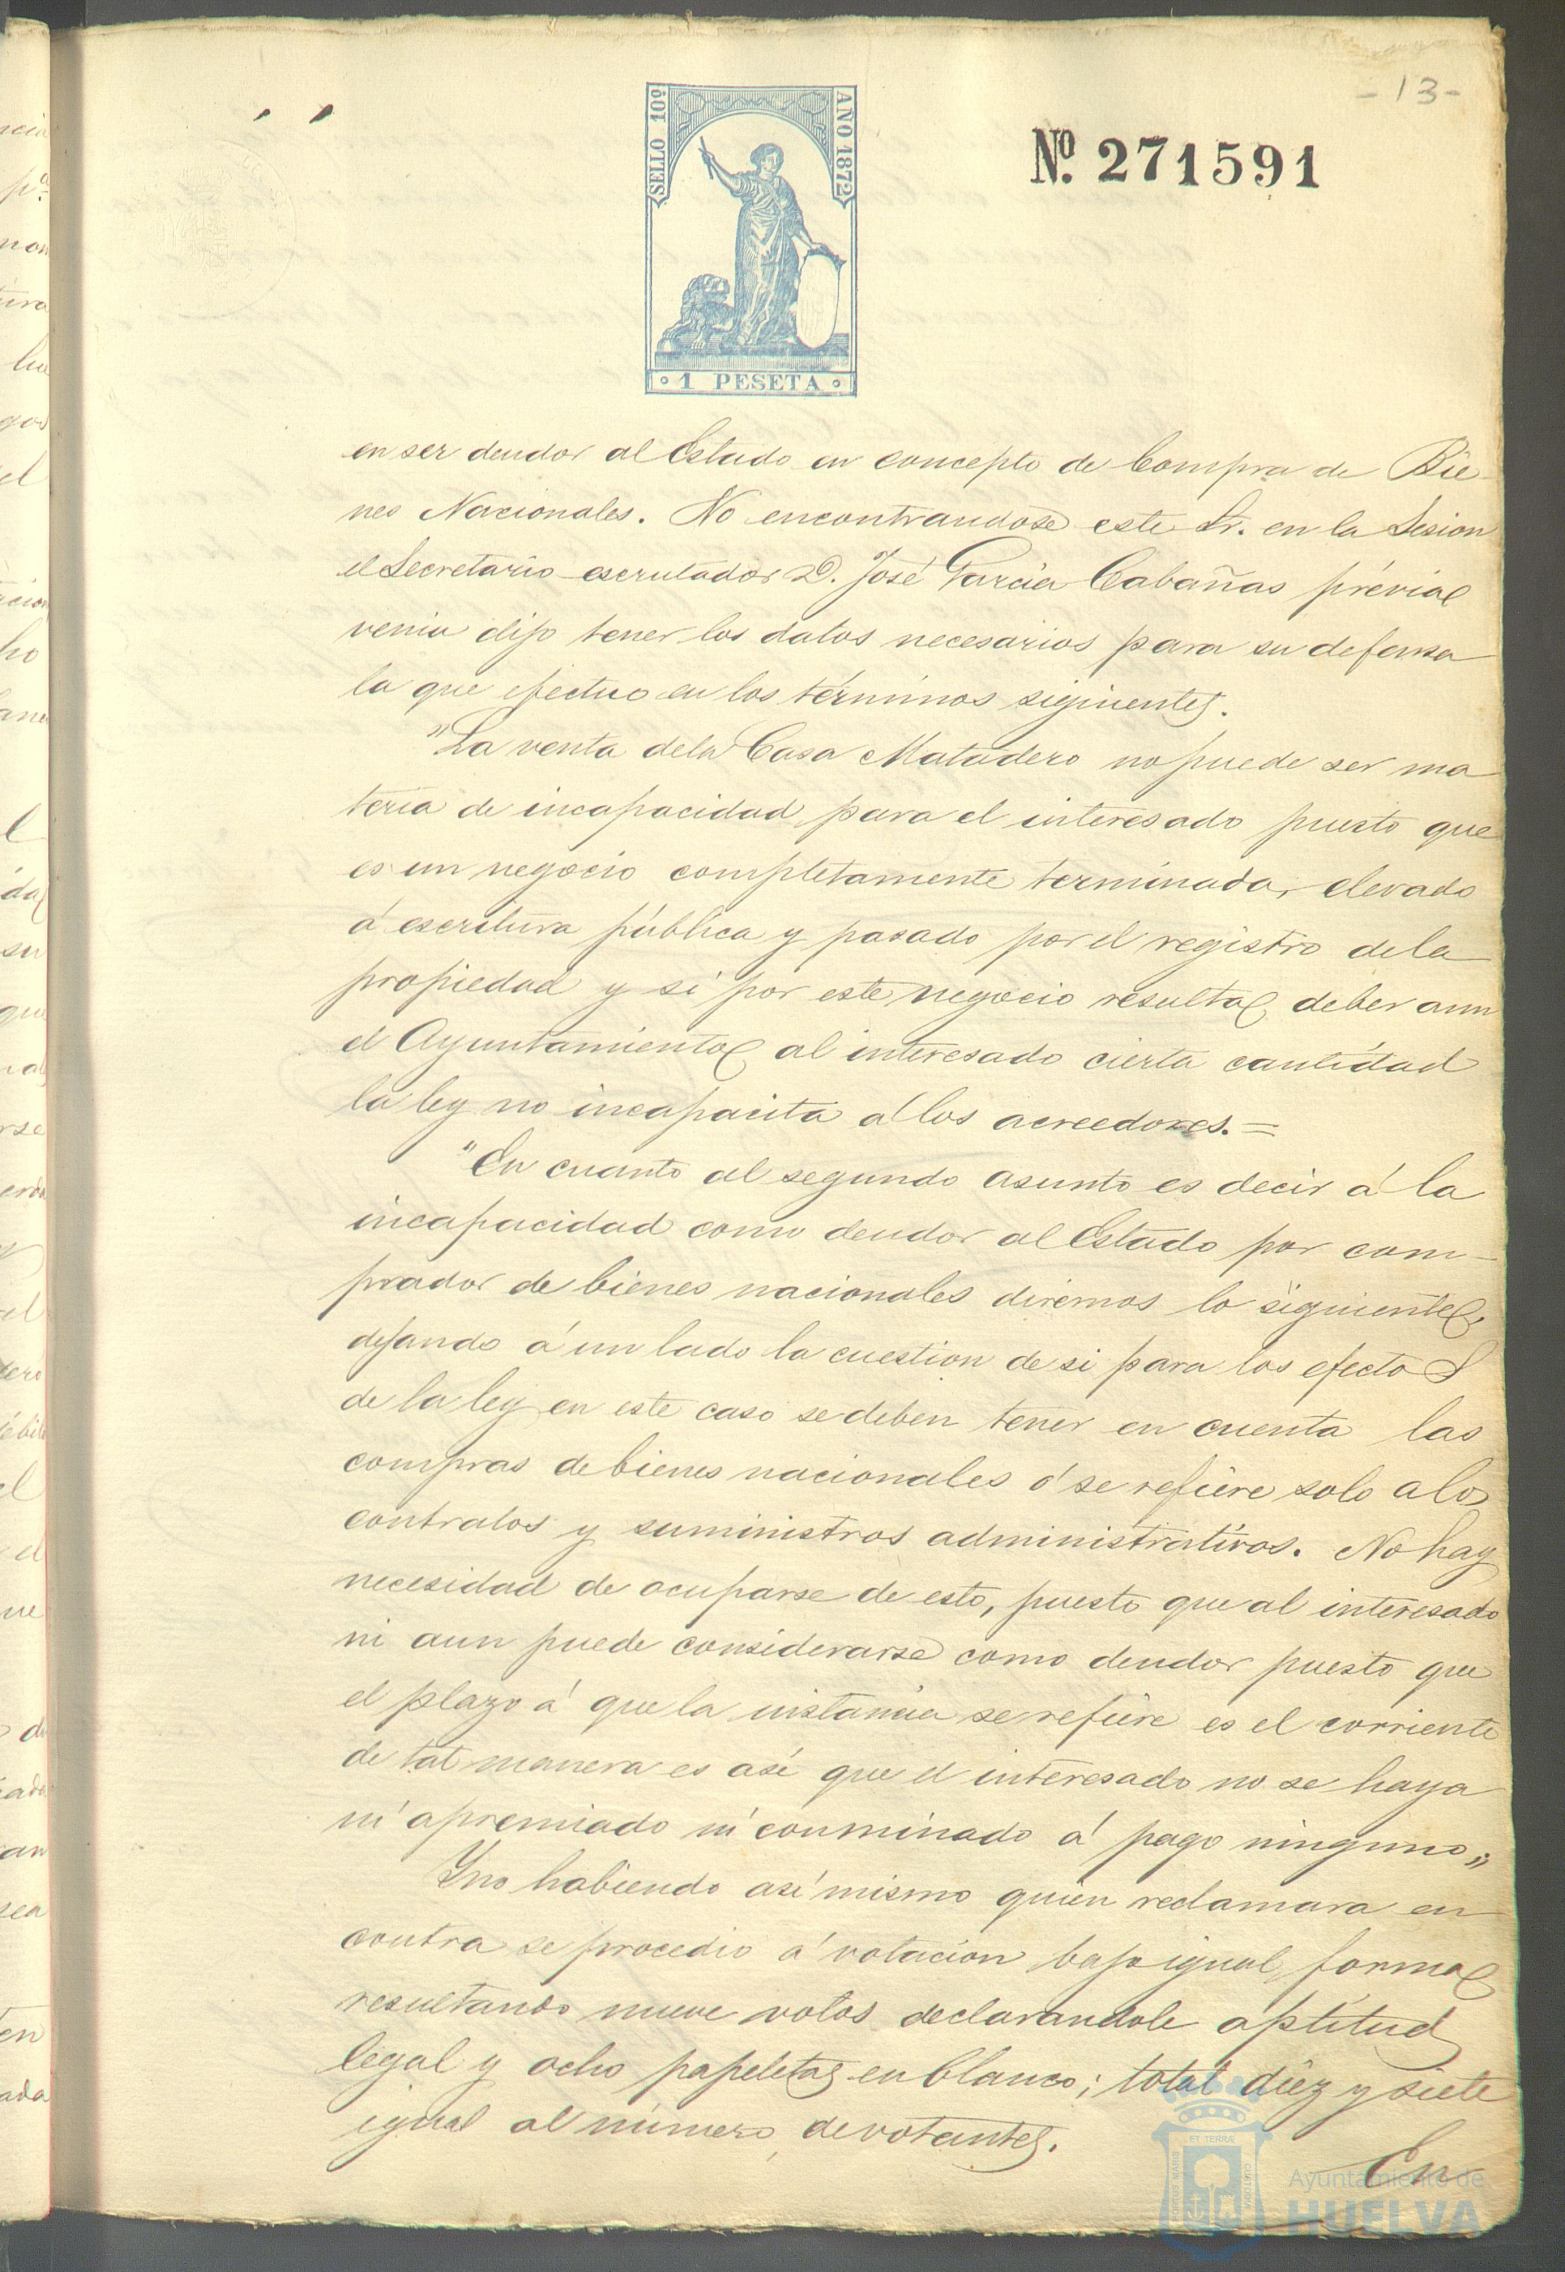 - 13 -
SELLO 10º
AÑO 1872
Nº. 271591
1 PESETA
en ser deudor al Estado en concepto de Compra de Bie-
nes Nacionales. No encontrandose este Sr. en la Sesion
el Secretario escrutador D. José Garcia Cabañas prévia
venia dijo tener los datos necesarios para su defensa
la que efectuo en los términos siguientes.
"La venta dela Casa Matadero no puede ser ma
teria de incapacidad para el interesado puesto que
es un negocio completamente terminado, elevado
á escritura pública y pasado por el registro dela
propiedad y si por este negocio resulta deber aun
el Ayuntamiento al interesado cierta cantidad
la ley no incapacita á los acreedores.=
"En cuanto al segundo asunto es decir á la
incapacidad como deudor al Estado por com-
prador de bienes nacionales diremos lo siguiente,
dejando á un lado la cuestion de si para los efectos
de la ley en este caso se deben tener en cuenta las
compras de bienes nacionales ó se refiere solo a los
contratos y suministros administrativos. No hay
necesidad de ocuparse de esto, puesto que al interesado
ni aun puede considerarse como deudor puesto que
el plazo á que la instancia se refiere es el corriente
de tal manera es asi que el interesado no se haya
ni apremiado ni conminado á pago ninguno„
Y no habiendo asi mismo quien reclamara en
contra se procedio á votacion bajo igual forma
resultando nueve votos declarandole aptitud
legal y ocho papeletas en blanco; total diez y siete
igual al número de votantes.
En
Ayuntamiento de
HUELVA